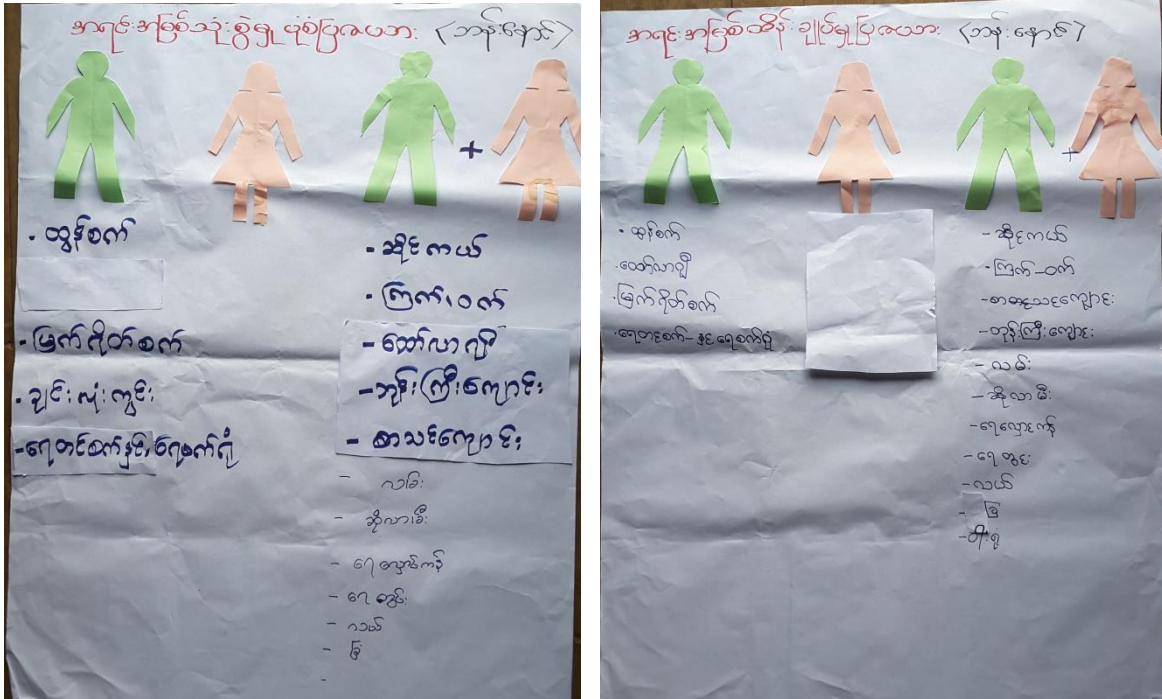 အရင်းအမြစ်သုံးစွဲမှု ပုံစံပြဇယား (ဘန်းနောင်)
+
· ထွန်စက်
· မြက်ရိတ်စက်
· ခြင်းလုံးကွင်း
- ရေတင်စက်နှင့် ရေစက်ရုံ
- ဆိုင်ကယ်
· ကြက်၊ ဝက်
- ထော်လာဂျီ
- ဘုန်းကြီးကျောင်း
- စာသင်ကျောင်း
- လမ်း
- ဆိုလာမီး
- ရေလှောင်ကန်
- ရေတွင်း
- လယ်
- ခြံ
-
အရင်းအမြစ်ထိန်းချုပ်မှုပြဇယား (ဘန်းနောင်)
+
· ထွန်စက်
· ထော်လာဂျီ
· မြက်ရိတ်စက်
· ရေတင်စက်-နှင့် ရေစက်ရုံ
- ဆိုင်ကယ်
· ကြက်-ဝက်
- စာသင်ကျောင်း
- ဘုန်းကြီးကျောင်း
- လမ်း
- ဆိုလာမီး
- ရေလှောင်ကန်
- ရေတွင်း
- လယ်
- ခြံ